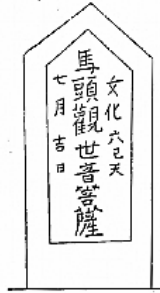 文化六己天
馬頭觀世音菩薩
七月吉日